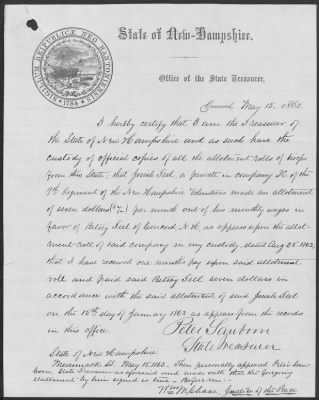 State of New-Hampshire.
SIGILLUM REIPUBLICÆ NEO HANTONIENSIS
1784
Office of the State Treasurer,
Concord May 15, 1863.
I hereby certify that I am the Treasurer of
the State of New Hampshire and as such have the
custody of official copies of all the allotment rolls of troops
from this State; that Josiah Teel, a private in company H. of the
7th Regiment of the New Hampshire Volunteers made an allotment
of seven dollars ($7—) per month out of his monthly wages in
favor of Betsey Teel of Concord N.H. as appears upon the allot-
ment roll of said company in my custody, dated Aug 25. 1862,
that I have received one months pay upon said allotment
role and paid said Betsey Teel seven dollars in
accordance with the said allotment of said Josiah Teel
on the 15th day of January 1863 as appears from the records
in this office.
Peter Sanborn
State Treasurer
State of New Hampshire
Merrimack SS. May 15. 1863. Then personally appeared Peter San-
born, State Treasurer as aforesaid and made oath that the foregoing
statement by him signed is true — Before me:—
Wm M. Chase, Justice of the Peace